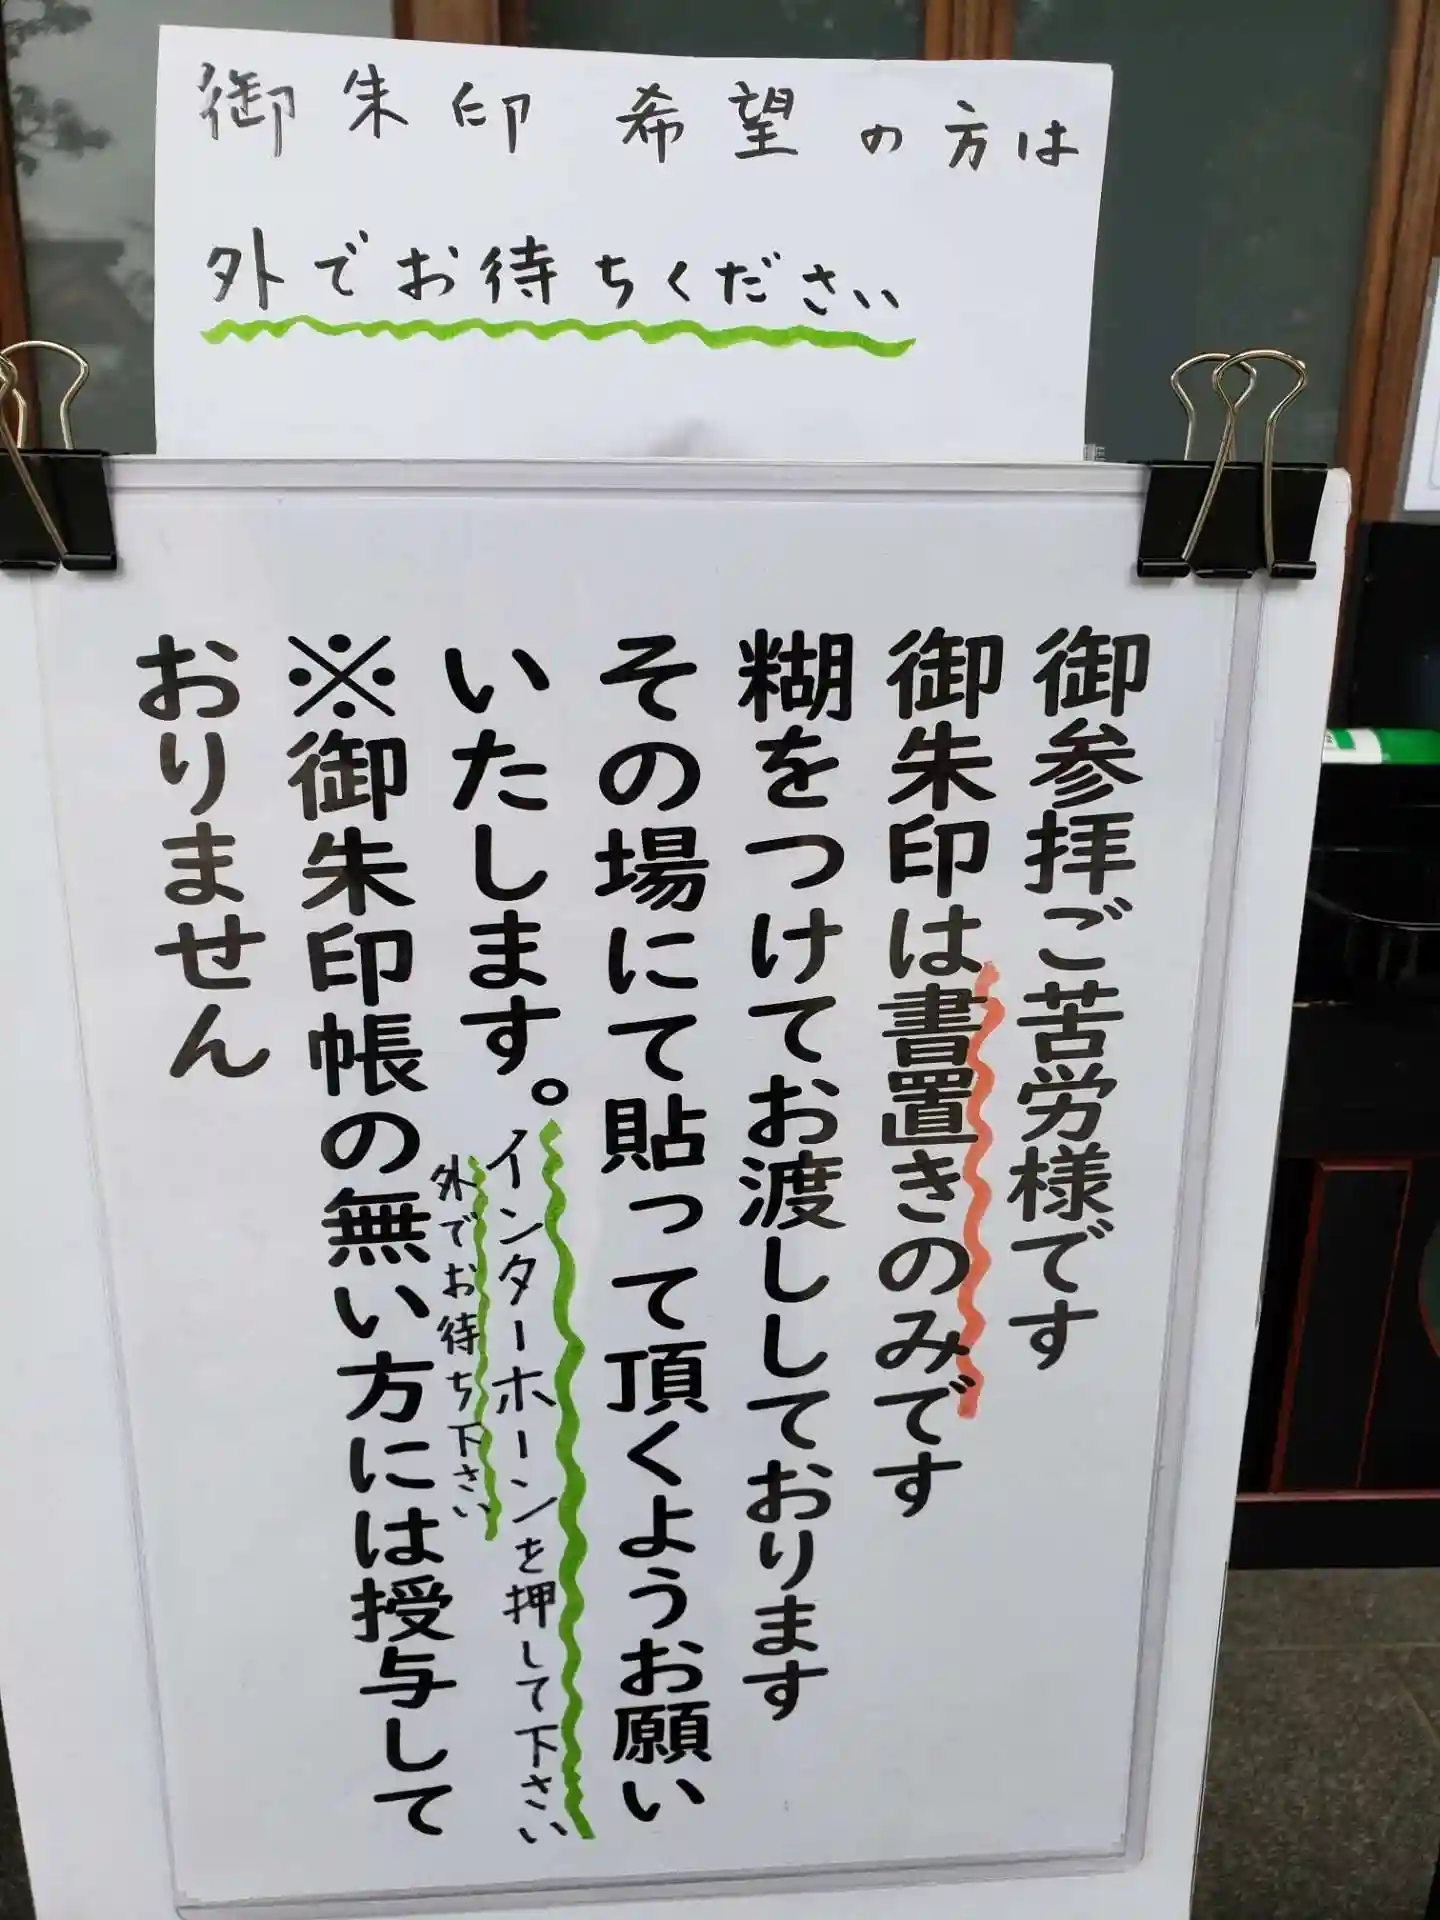 御朱印 希望の方は
外でお待ちください
御参拝ご苦労様です
御朱印は書置きのみです
糊をつけてお渡ししております
その場にて貼って頂くようお願い
いたします。
インターホンを押して下さい
外でお待ち下さい
※御朱印帳の無い方には授与して
おりません